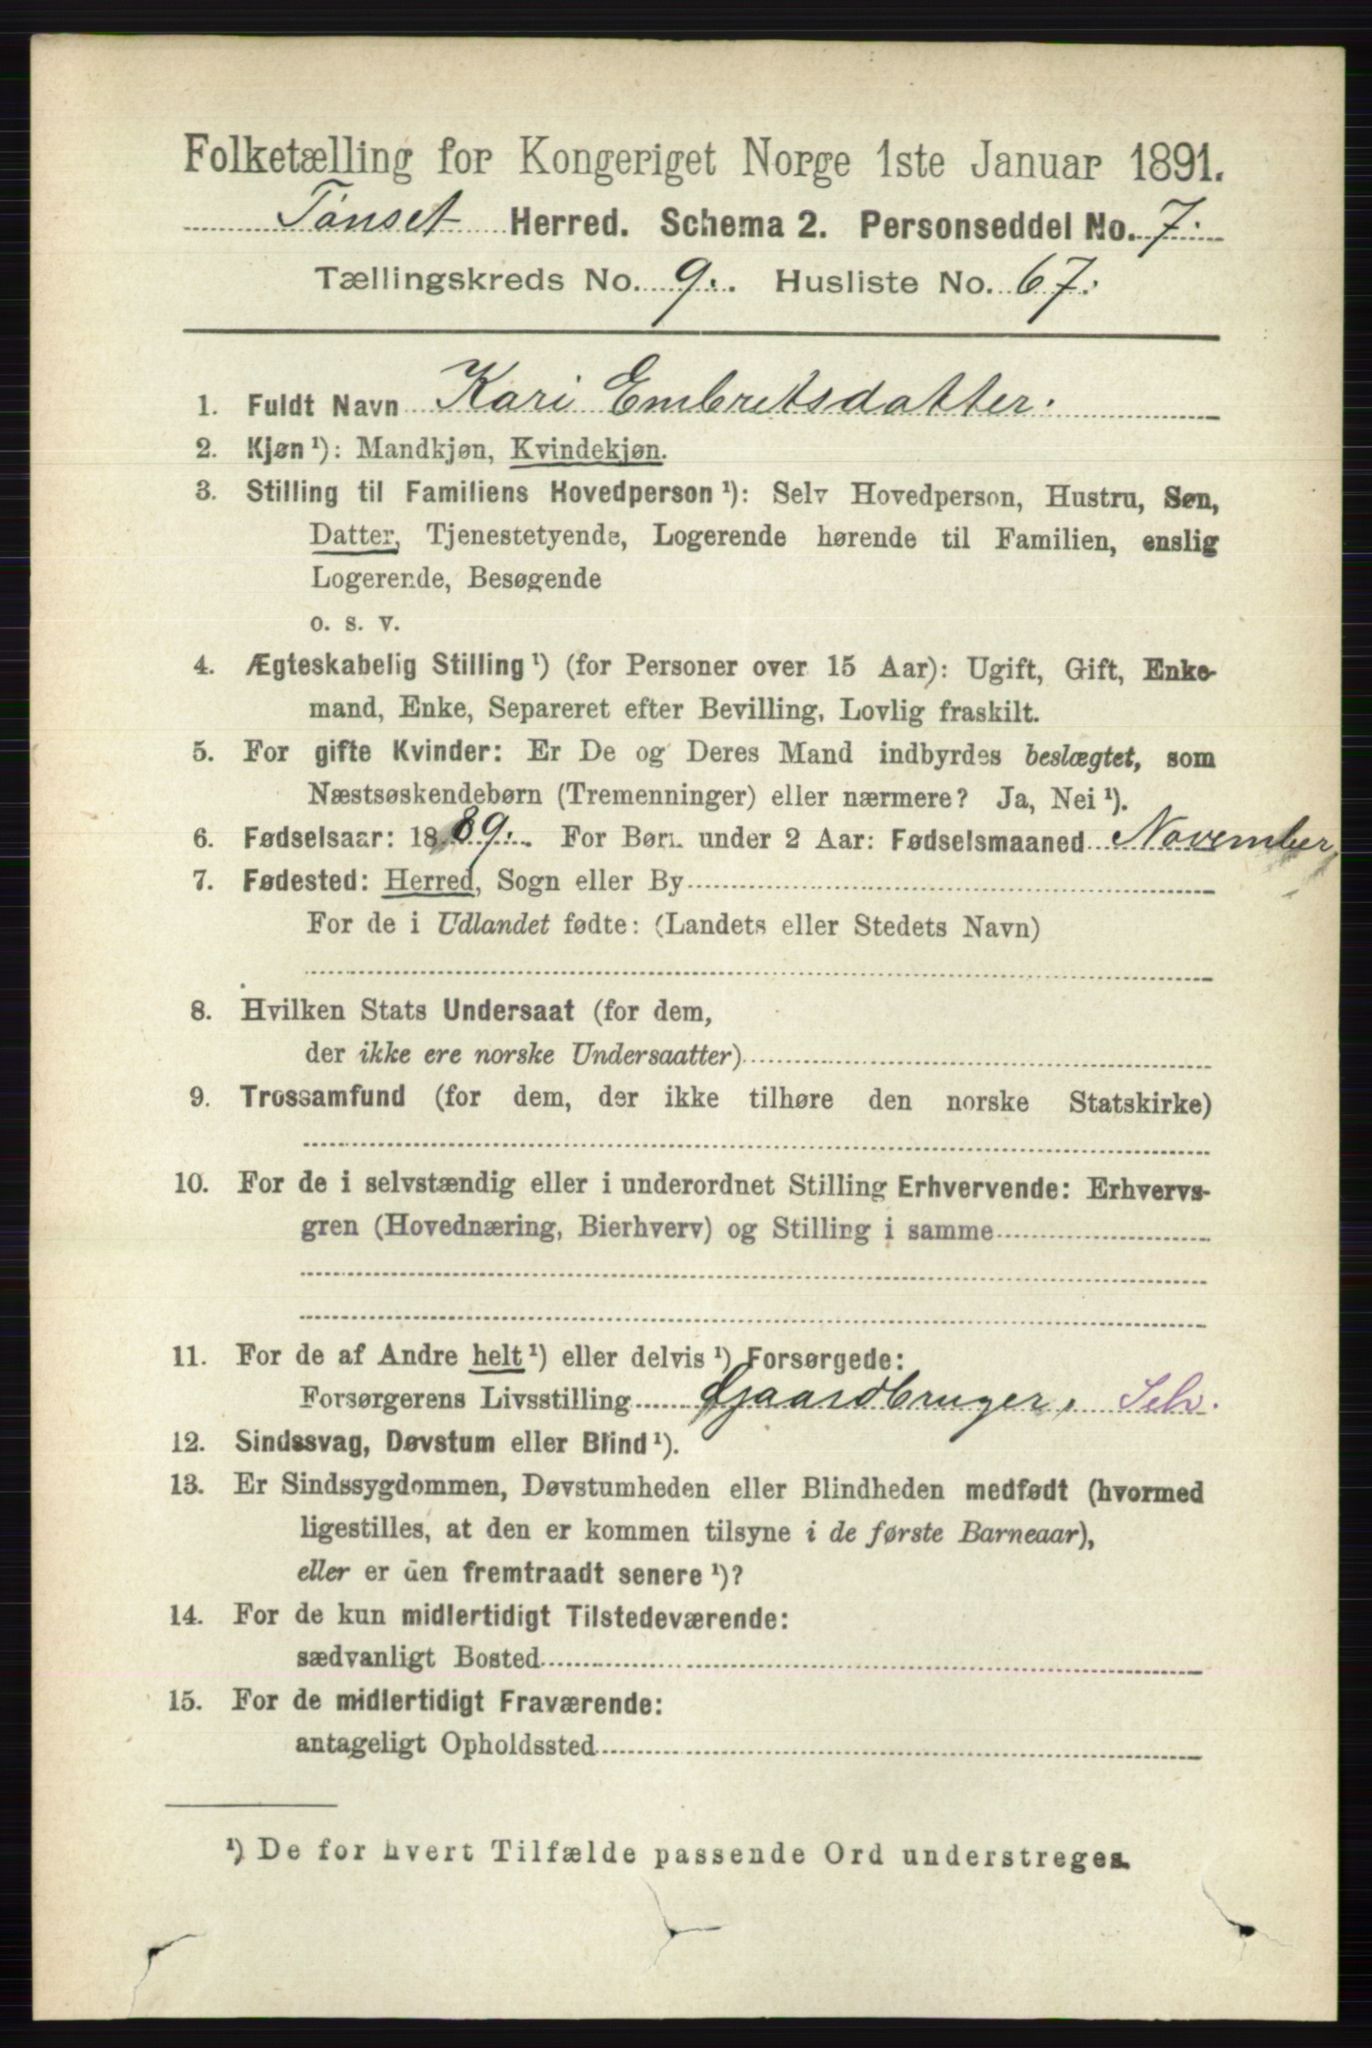 Folketælling for Kongeriget Norge 1ste Januar 1891.
Tønset Herred. Schema 2. Personseddel No. 7.
Tællingskreds No. 9. Husliste No. 67.
1. Fuldt Navn Kari Embretsdatter.
2. Kjøn ¹): Mandkjøn, Kvindekjøn.
3. Stilling til Familiens Hovedperson ¹): Selv Hovedperson, Hustru, Søn,
Datter, Tjenestetyende, Logerende hørende til Familien, enslig
Logerende, Besøgende
o. s. v.
4. Ægteskabelig Stilling ¹) (for Personer over 15 Aar): Ugift, Gift, Enke-
mand, Enke, Separeret efter Bevilling, Lovlig fraskilt.
5. For gifte Kvinder: Er De og Deres Mand indbyrdes beslægtet, som
Næstsøskendebørn (Tremenninger) eller nærmere? Ja, Nei ¹).
6. Fødselsaar: 1889. For Børn under 2 Aar: Fødselsmaaned November,
7. Fødested: Herred, Sogn eller By
For de i Udlandet fødte: (Landets eller Stedets Navn)
8. Hvilken Stats Undersaat (for dem,
der ikke ere norske Undersaatter)
9. Trossamfund (for dem, der ikke tilhøre den norske Statskirke)
10. For de i selvstændig eller i underordnet Stilling Erhvervende: Erhvervs-
gren (Hovednæring, Bierhverv) og Stilling i samme
11. For de af Andre helt ¹) eller delvis ¹) Forsørgede:
Forsørgerens Livsstilling Gaardbruger, Selv.
12. Sindssvag, Døvstum eller Blind ¹).
13. Er Sindssygdommen, Døvstumheden eller Blindheden medfødt (hvormed
ligestilles, at den er kommen tilsyne i de første Barneaar),
eller er den fremtraadt senere ¹)?
14. For de kun midlertidigt Tilstedeværende:
sædvanligt Bosted
15. For de midlertidigt Fraværende:
antageligt Opholdssted
¹) De for hvert Tilfælde passende Ord understreges.